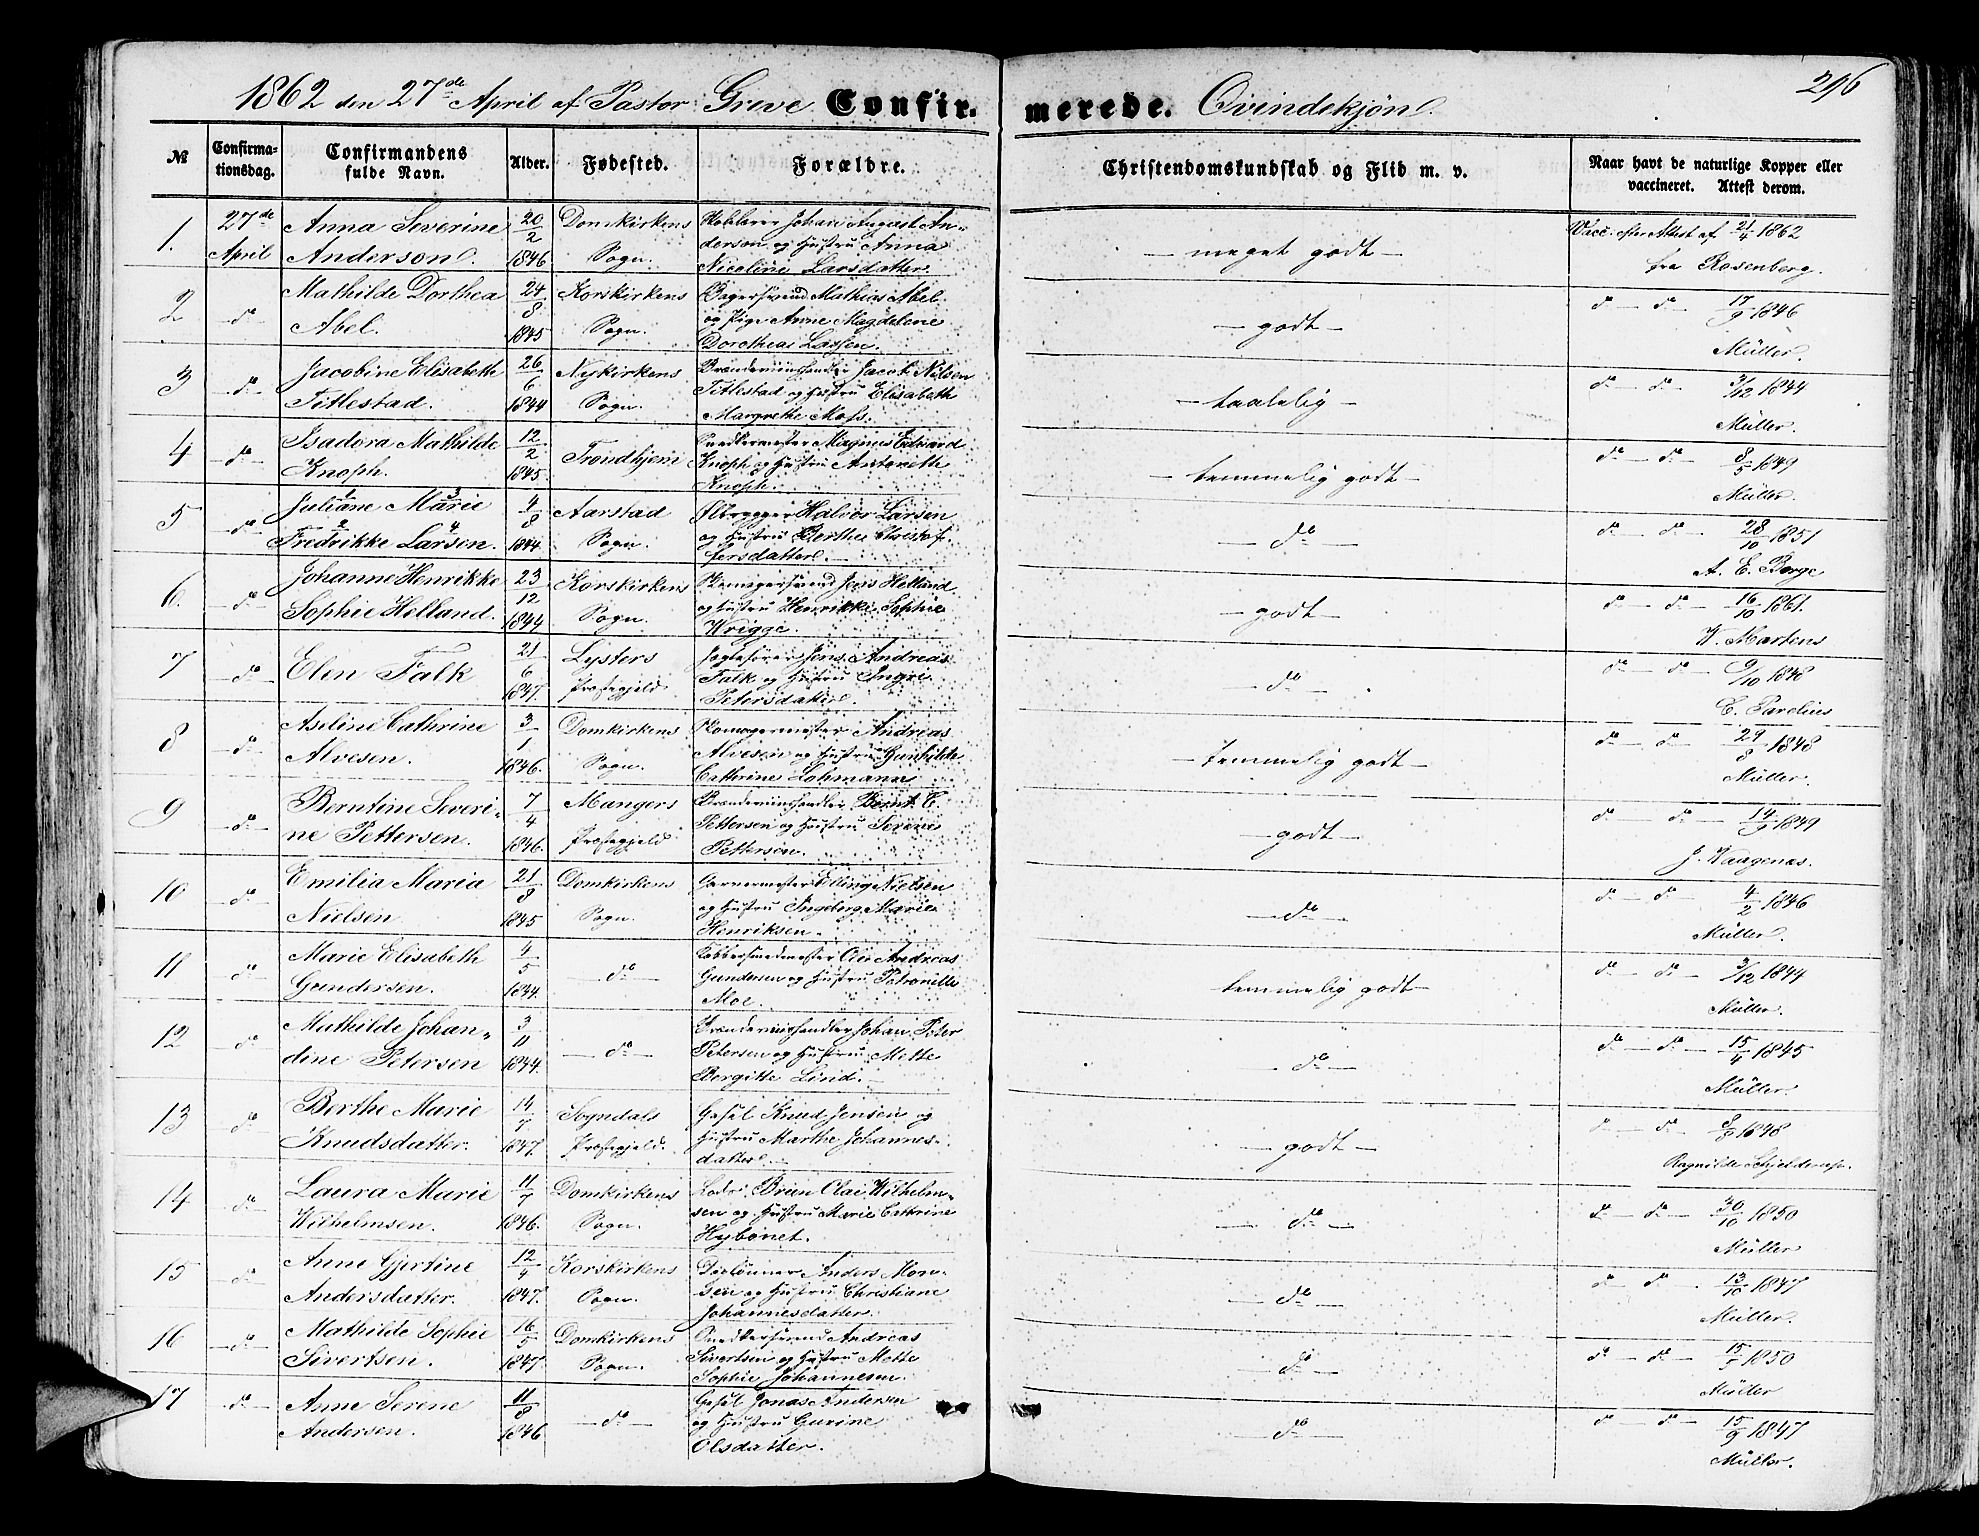 1862 den 27de April af Pastor Greve Confirmerede. Qvindekjøn.
296
№ Confirmationsdag. Confirmandens fulde Navn. Alder. Fødested. Forældre. Christendomskundskab og Flid m. v. Naar havt de naturlige Kopper eller vaccineret. Attest derom.
1. 27de Anna Severine 20/2 Domkirkens Johan August An-
April Anderson. 1846 Sogn. derson og Hustru Anna
Nicoline Larsdatter.
– meget godt –
Vacc. efter Attest af 21/4 1862
fra Rosenberg.
2 do Mathilde Dorthea 24/8 Korskirkens Bagersvend Mathias Abel
Abel. 1845 Sogn. og Pige Anne Magdelene
Dorotheas Larsen.
– godt –
do – do – 17/9 1846
Müller.
3 do Jacobine Elisabeth 26/6 Nykirkens Brændeviinshandler Jacob Nilsen
Titlestad. 1844 Sogn. Titlestad og Hustru Elisabeth
Margrethe Mohs.
– taalelig –
do – do – 3/12 1844
Müller.
4 do Isadora Mathilde 12/2 Trondhjem Snedkermester Magnus Edvard
Knoph. 1845. Knoph og Hustru Antonette
Knoph.
– temmelig godt –
do – do – 8/5 1849
Müller.
5 do Juliane Marie 4/8 Aarstad Ølbrygger Halvor Larsen
Fredrikke Larsen. 1844 Sogn. og Hustru Berthe Christof-
fersdatter.
– do –
do – do – 28/10 1851
A. E. Borge
6. do Johanne Henrikke 23/12 Korskirkens Skomagersvend Jens Helland
Sophie Helland. 1844 Sogn. og Hustru Henrikke Sophie
Wrigge.
– godt –
do – do – 16/10 1861.
W. Martens
7 do Elen Falk 21/6 Lysters Jægtefører Jens Andreas
1847. Præstegjeld Falk og Hustru Ingri
Petersdatter.
– do –
do – do – 9/10 1848
C. Parelius
8 do Aseline Cathrine 3/1 Domkirkens Skomagermester Andreas
Alvesen. 1846. Sogn. Alvesen og Hustru Gunhilde
Catherine Lohmann
– temmelig godt –
do – do – 29/8 1848
Müller.
9 do Berntine Severi- 7/4 Mangers Brændeviinshandler Bernt C.
ne Pettersen. 1846. Præstegjeld Pettersen og Hustru Serine
Pettersen.
– godt –
do – do – 14/9 1849
J. Waagenæs.
10 do Emilia Maria 21/8 Domkirkens Garvermester Elling Nielsen
Nielsen 1845 Sogn. og Hustru Ingeborg Marie
Henriksen.
– do –
do – do – 4/2 1846
Müller.
11 do Marie Elisabeth 4/5 – do – Kobbersmedmester Ole Andreas
Gundersen. 1844. Gundersen og Hustru Petronille
Moe.
– temmelig godt –
do – do – 3/12 1844
Müller.
12 do Mathilde Johan- 3/11 – do – Brændeviinshandler Johan Peter
dine Petersen 1844. Petersen og Hustru Mette
Bergitte Lind.
– do –
do – do – 15/4 1845
Müller.
13 do Berthe Marie 14/7 Sogndals Gasel Knud Jensen og
Knudsdatter. 1847. Præstegjeld. Hustru Marthe Johannes-
datter.
– godt –
do – do – 8/8 1848
Ragnilde Schjelderup.
14 do Laura Marie 11/7 Domkirkens Brun Olai Wilhelm-
Wilhelmsen. 1846. Sogn. sen og Hustru Marie Cathrine
Hybonet.
– do –
do – do – 30/10 1850
Müller
15 do Anne Gjertine 12/4 Korskirkens Anders Mon-
Andersdatter. 1847. Sogn. sen og Hustru Christiane
Johannesdatter.
– do –
do – do – 13/10 1847
Müller.
16 do Mathilde Sophie 16/5 Domkirkens Snedkersvend Andreas
Sivertsen. 1847 Sogn. Sivertsen og Hustru Mette
Sophie Johannesen.
– do –
do – do – 15/7 1850
Müller
17 do Anne Serene 11/8 – do – Gasel Jonas Andersen
Andersen. 1846 og Hustru Gurine
Olsdatter.
– do –
do – do – 15/9 1847
Müller.